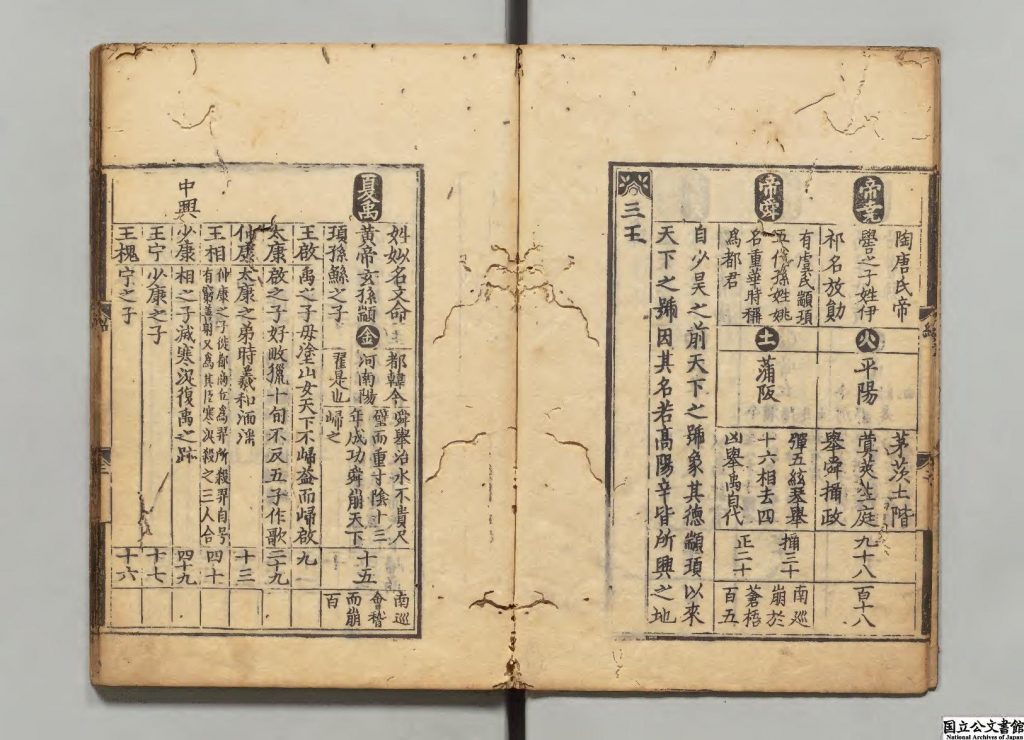 帝堯
陶唐氏帝
嚳之子姓伊
祁名放勛
火
平陽
茅茨土階
蓂莢生庭
舉舜攝政
九十八
百十八
帝舜
有虞氏顓頊
五代孫姓姚
名重華時稱
爲都君
土
蒲阪
彈五絃琴舉
十六相去四
凶舉禹自代
攝三十
正二十
南巡
崩於
蒼梧
百五
自少昊之前天下之號象其德顓頊以來
天下之號因其名若高陽辛皆所興之地
三王
夏禹
姓姒名文命
黃帝玄孫顓
頊孫鯀之子
金
都韓今
河南陽
翟是也
舜舉治水不貴尺
璧而重寸陰十三
年成功舜崩天下
歸之
十五
南巡
會稽
而崩
百
王啟禹之子母塗山女天下不歸益而歸啟
九
太康啟之子好畋獵十旬不反五子作歌
二十九
仲康太康之弟時羲和湎淫
十三
王相仲康之子徙都商丘爲羿所殺羿自号
有窮善射又爲其臣寒浞殺之三人合
四十
中興
少康相之子滅寒浞復禹之跡
四十九
王宁少康之子
十七
王槐宁之子
十六
国立公文書館
National Archives of Japan